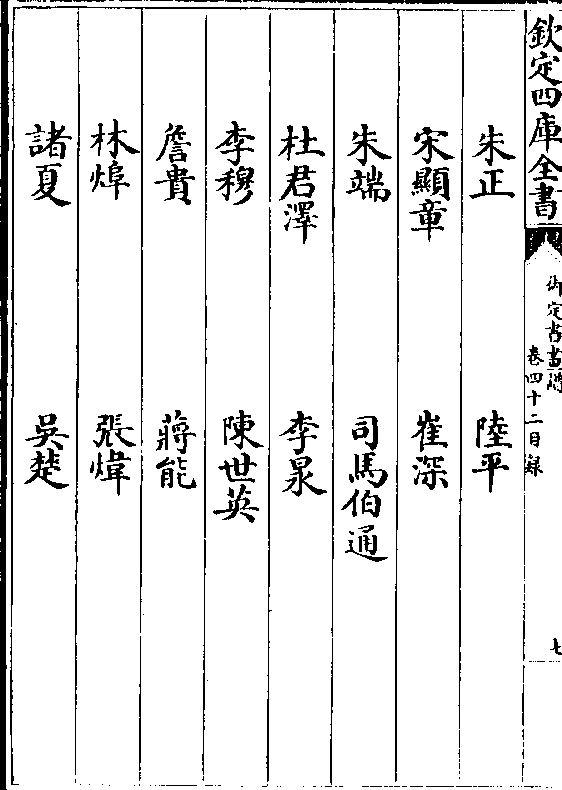 欽定四庫全書
御定書畫譜
卷四十二目録
七
朱正 陸平
宋顯章 崔深
朱端 司馬伯通
杜君澤 李泉
李穆 陳世英
詹貴 蔣能
林焞 張煒
諸夏 吳楚